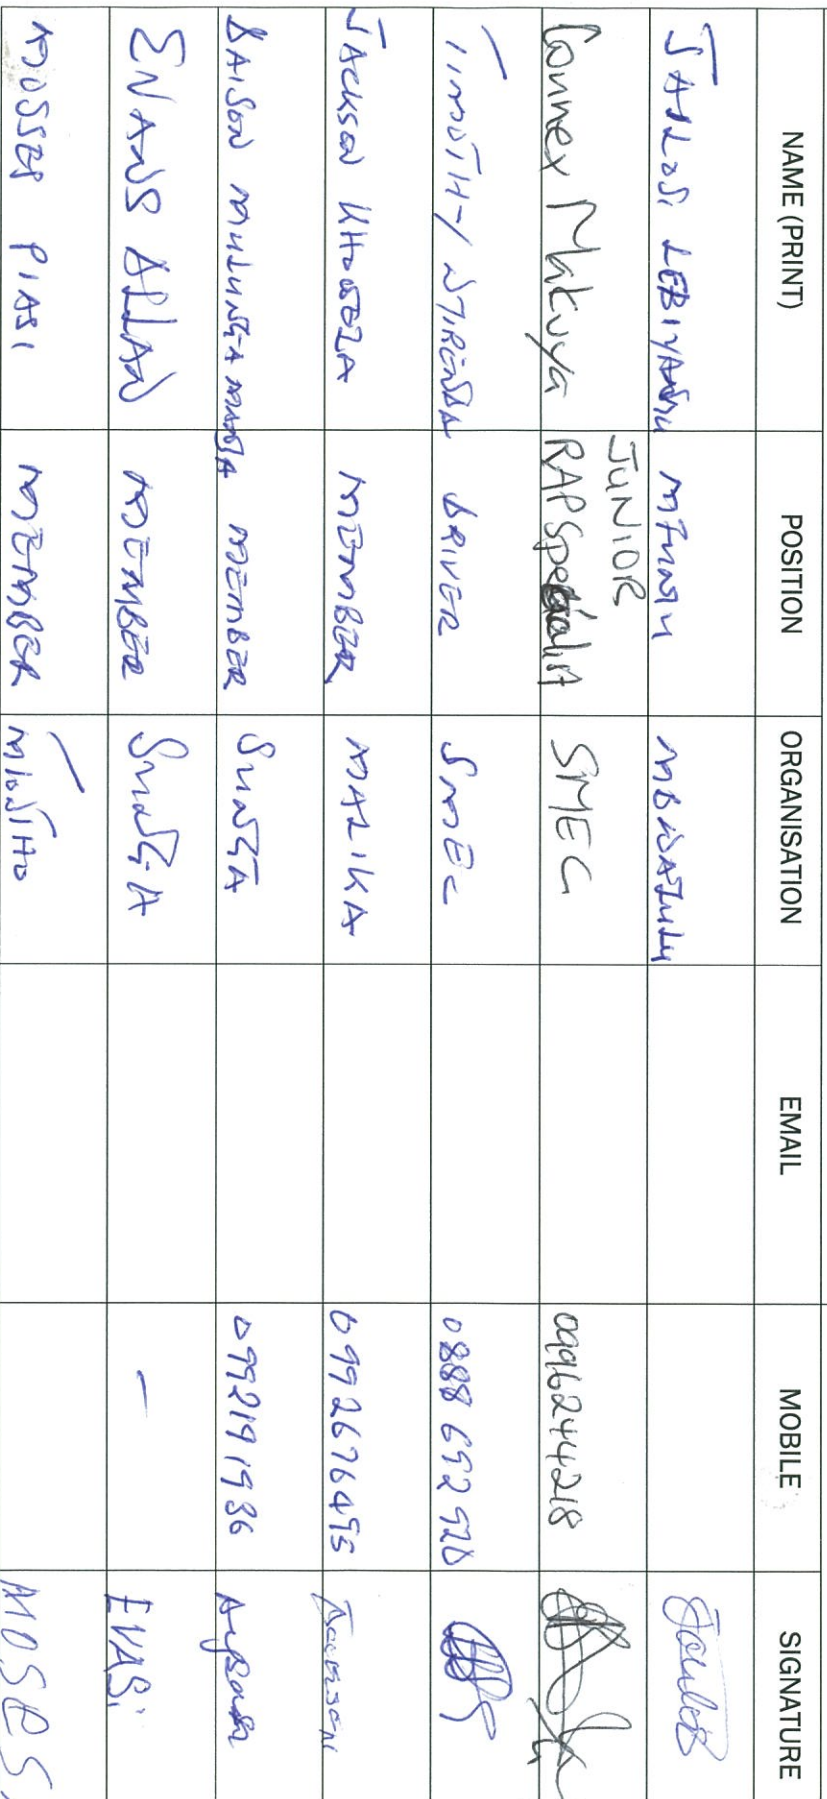 NAME (PRINT) POSITION ORGANISATION EMAIL MOBILE SIGNATURE
JAILOSI MFUMU
Connex Makuya JUNIOR RAP Specialist SMEC 0996244218
TIMOTHY NTIRENDA DRIVER SMEC 0888 692 920
JACKSON KHOWOZA MEMBER MALIKA 0992676495
DAISON MEMBER SUNGA 0992191936
ENANS ALLAN MEMBER SUNGA — EVASi
MOSSES PIASI MEMBER MIONTHO MOSES